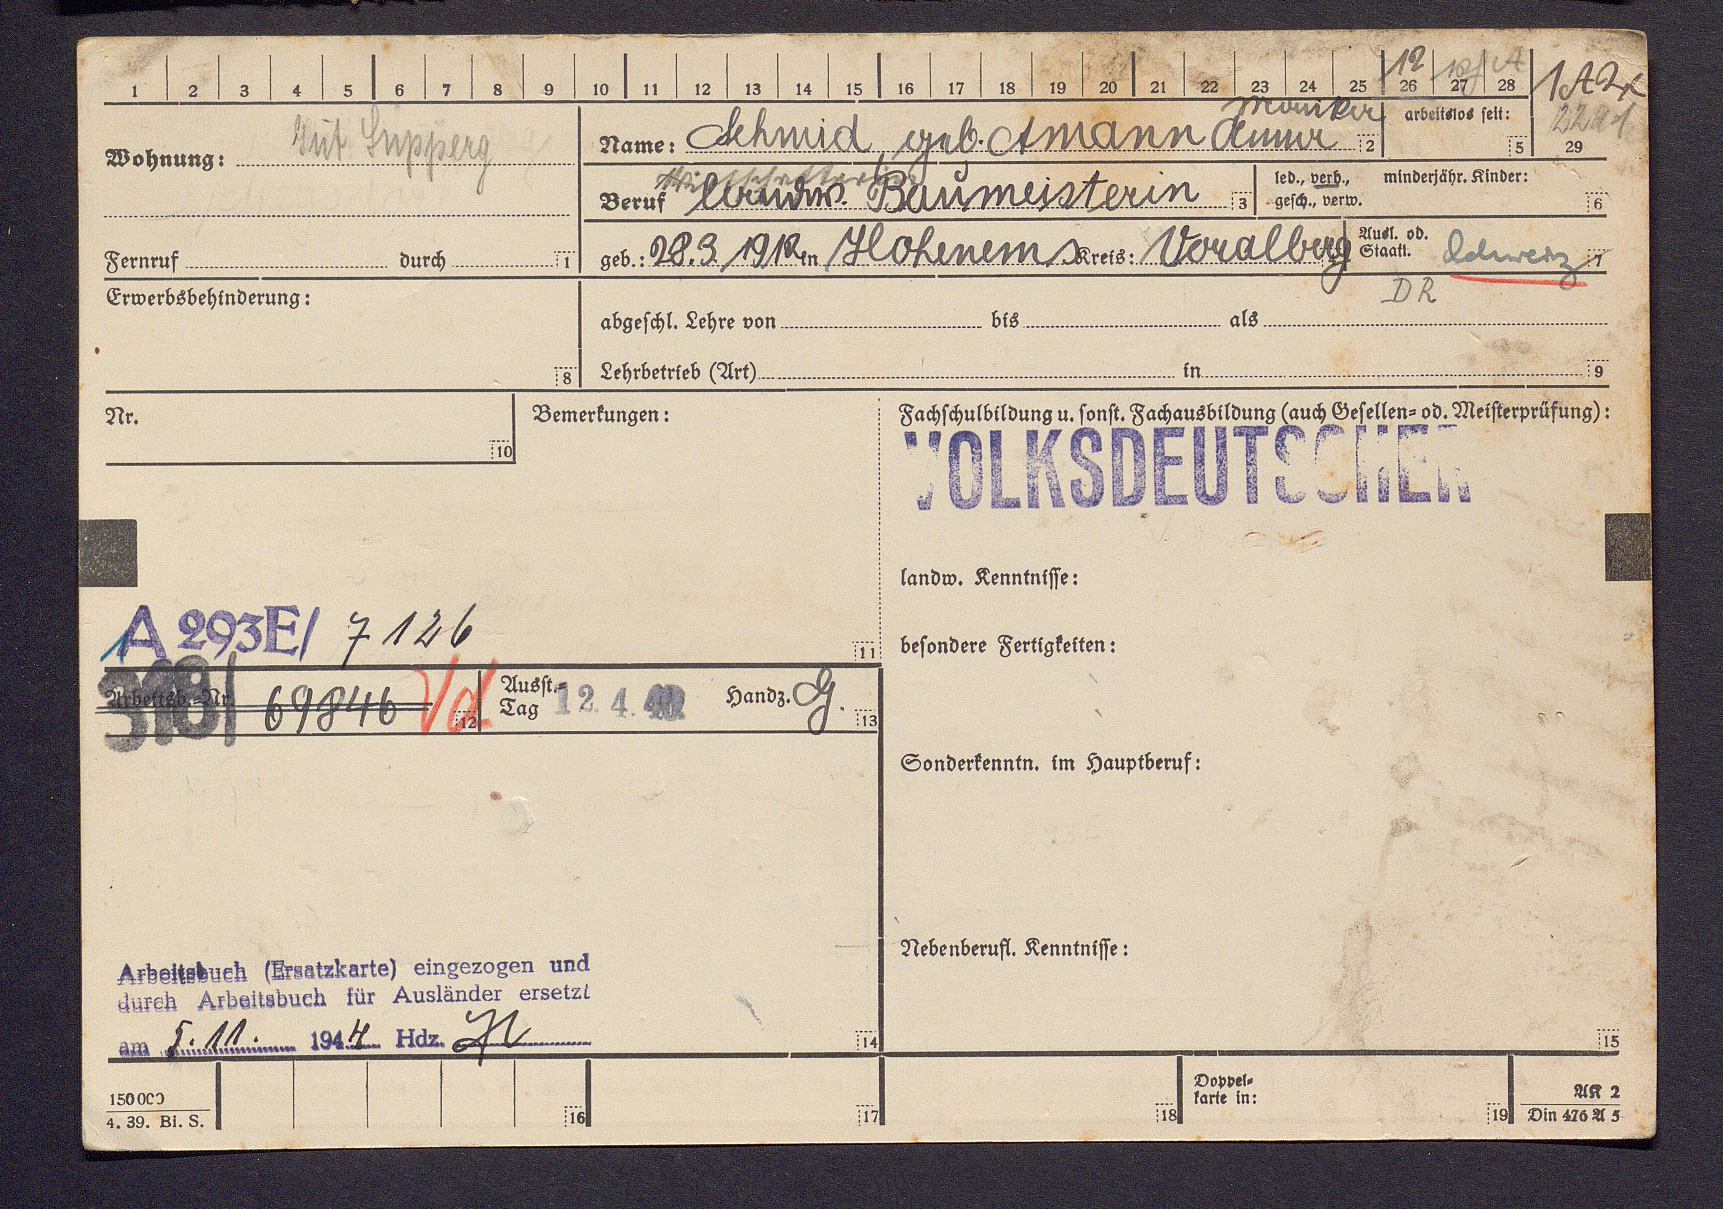 1 2 3 4 5 6 7 8 9 10 11 12 13 14 15 16 17 18 19 20 21 22 23 24 25 26 27 28
12
1A2
Wohnung: Gut Süpperg
Name: Schmid geb. Amann Anna 2
arbeitslos seit: 5
29
Beruf landw. Baumeisterin 3
led., verh., gesch., verw.
minderjähr. Kinder: 6
Fernruf durch 1
geb.: 28.3.1912 in Hohenems Kreis: Voralberg
Ausl. od. Staatl. Schweiz 7
DR
Erwerbsbehinderung: 8
abgeschl. Lehre von bis als
Lehrbetrieb (Art) in 9
Nr. 10
Bemerkungen:
Fachschulbildung u. sonst. Fachausbildung (auch Gesellen= od. Meisterprüfung):
VOLKSDEUTSCHER
landw. Kenntnisse:
A 293E/ 7126
11
besondere Fertigkeiten:
318/
Arbeitsb.-Nr. 69846 12
Ausst.-Tag 12.4.40
Handz. G. 13
Sonderkenntn. im Hauptberuf:
Nebenberufl. Kenntnisse:
Arbeitsbuch (Ersatzkarte) eingezogen und
durch Arbeitsbuch für Ausländer ersetzt
am 5.11. 1944 Hdz.
14
15
150000
4. 39. Bi. S.
16
17
18
Doppel=
karte in:
19
AK 2
Din 476 A 5